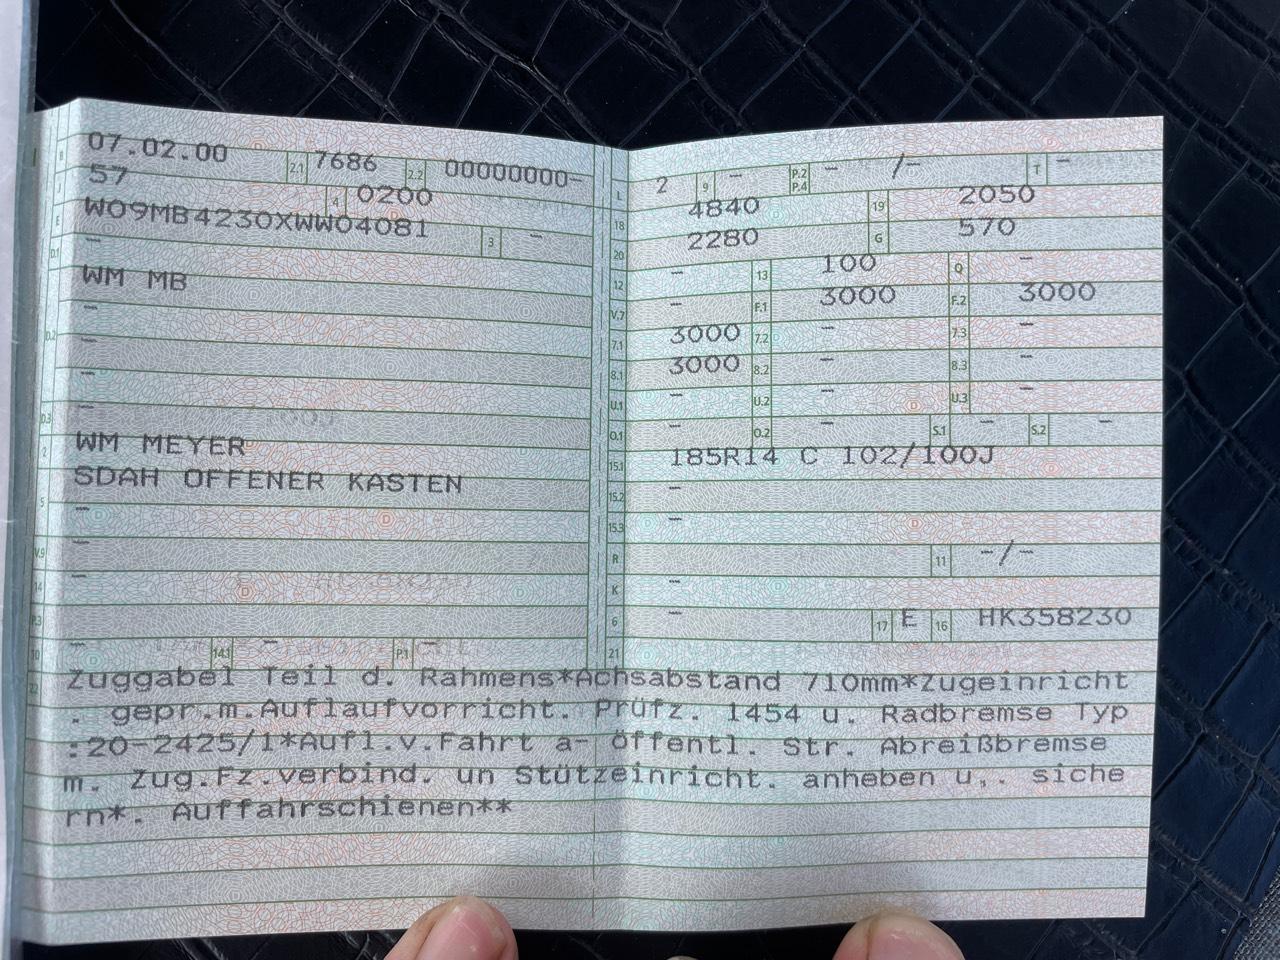 07.02.00 2.1 7686 2.2 00000000-
J 57 4 0200
E W09MB4230XWW04081 3 -
D.1 -
WM MB
-
D.2 -
-
D.3 -
2 WM MEYER
5 SDAH OFFENER KASTEN
-
V.9 -
14 -
P.3
10 - 14.1 - P.1 -
L 2 9 - P.2 P.4 - /- T -
18 4840 19 2050
20 2280 G 570
12 - 13 100 Q -
V.7 - F.1 3000 F.2 3000
7.1 3000 7.2 - 7.3 -
8.1 3000 8.2 - 8.3 -
U.1 - U.2 - U.3 -
O.1 - O.2 - S.1 - S.2 -
15.1 185R14 C 102/100J
15.2 -
15.3 -
R 11 -/-
K -
6 - 17 E 16 HK358230
21
22 Zuggabel Teil d. Rahmens*Achsabstand 710mm*Zugeinricht
. gepr.m.Auflaufvorricht. Prüfz. 1454 u. Radbremse Typ
:20-2425/1*Aufl.v.Fahrt a- öffentl. Str. Abreißbremse
m. Zug.Fz.verbind. un Stützeinricht. anheben u,. siche
rn*. Auffahrschienen**